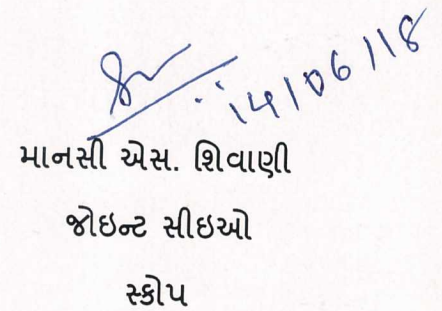 14/06/18
માનસી એસ. શિવાણી
જોઇન્ટ સીઇઓ
સ્કોપ